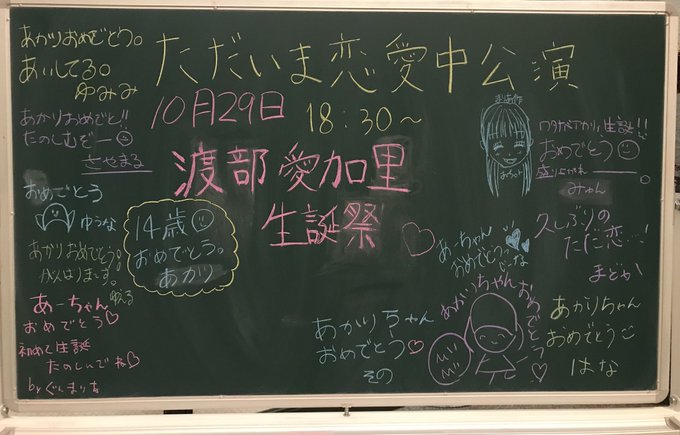 ただいま恋愛中公演
10月29日
18:30～
渡部愛加里
生誕祭
あかりおめでとう。
あいしてる。
ゆみみ
あかりおめでと!!
たのしむぞー
さやまる
おめでとう
ゆうな
あかりおめでとう。
がんばりまーす。
14歳
おめでとう。
あかり
あーちゃん
おめでとう♡
初めて生誕
たのしんでね♡
by ぐんまりな
生誕!!
おめでとう
みゅん
久しぶりの
ただ恋…!
まどか
あーちゃん
おめでとう。
あかりちゃんおめでとう♡
あかりちゃん
おめでとう♡
その
あかりちゃん
おめでとう
はな